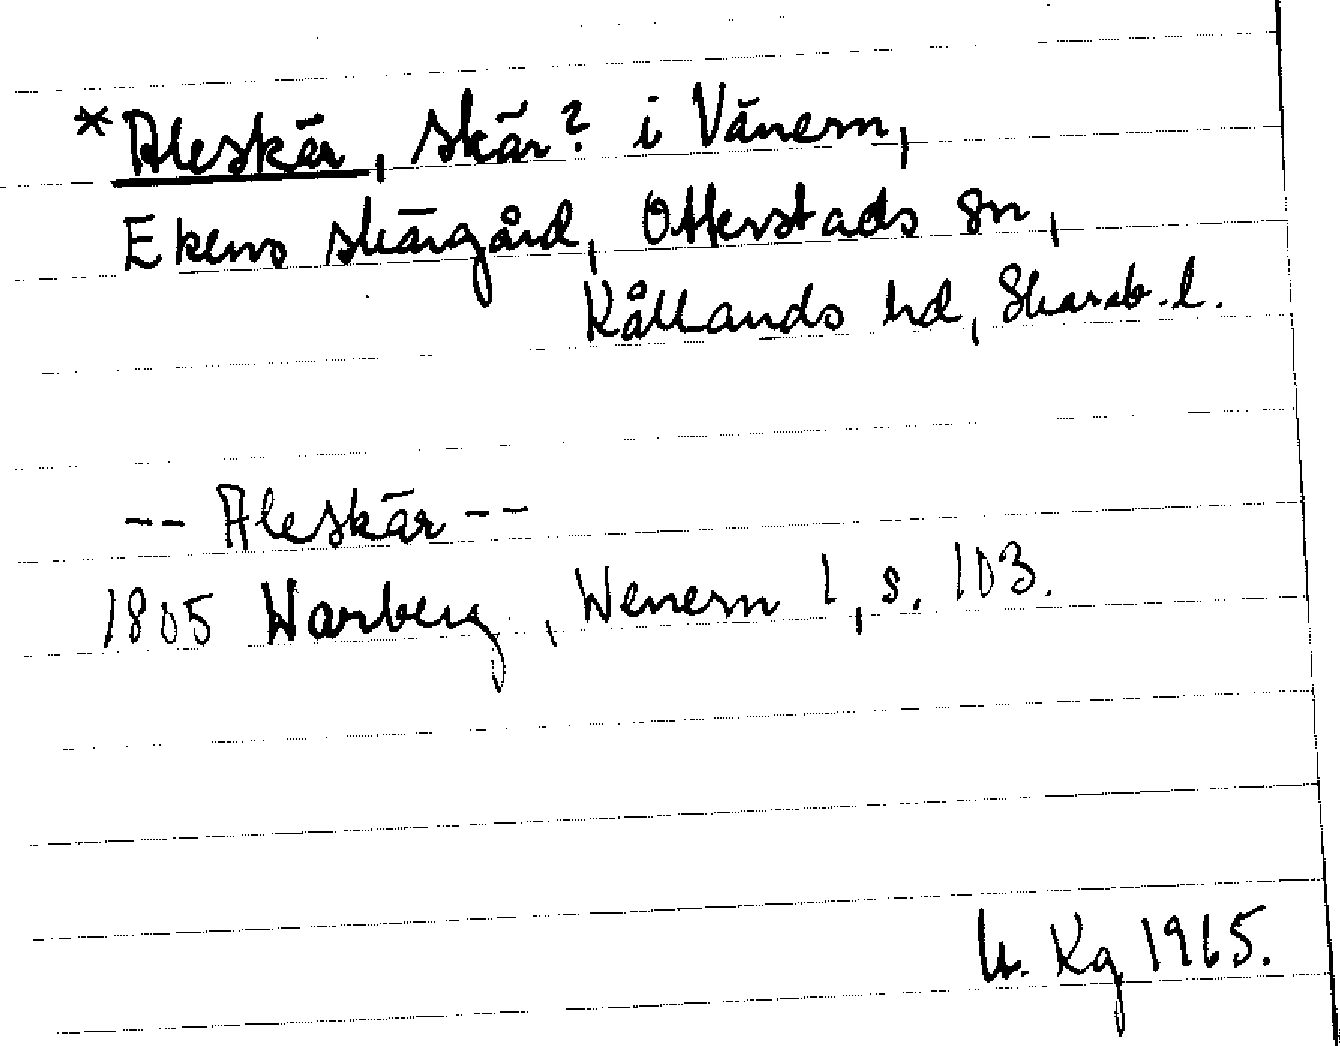 *Aleskär, skär? i Vänern,
Ekens skärgård, Otterstads sn,
Kållands hd, Skarab. l.
-- Aleskär --
1805 Warberg, Wenern 1, s. 103.
Kg 1965.